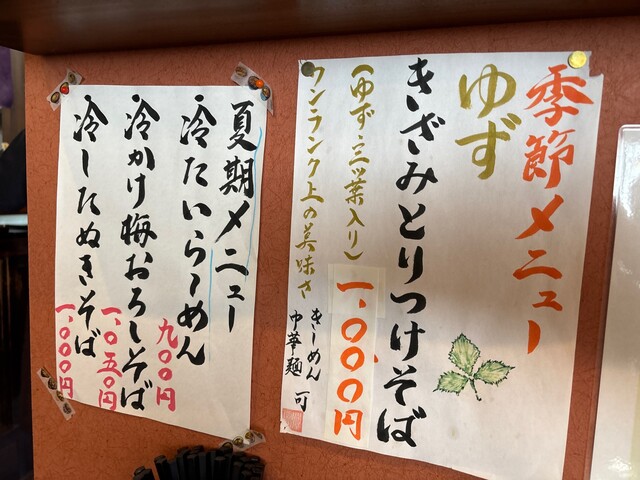 季節メニュー
ゆず
きざみとりつけそば
(ゆず・三ッ葉入り)
一、〇〇〇円
ワンランク上の美味さ
きしめん
中華麺 可
夏期メニュー
・冷たいらーめん
九〇〇円
・冷かけ梅おろしそば
一、〇五〇円
・冷したぬきそば
一、〇〇〇円